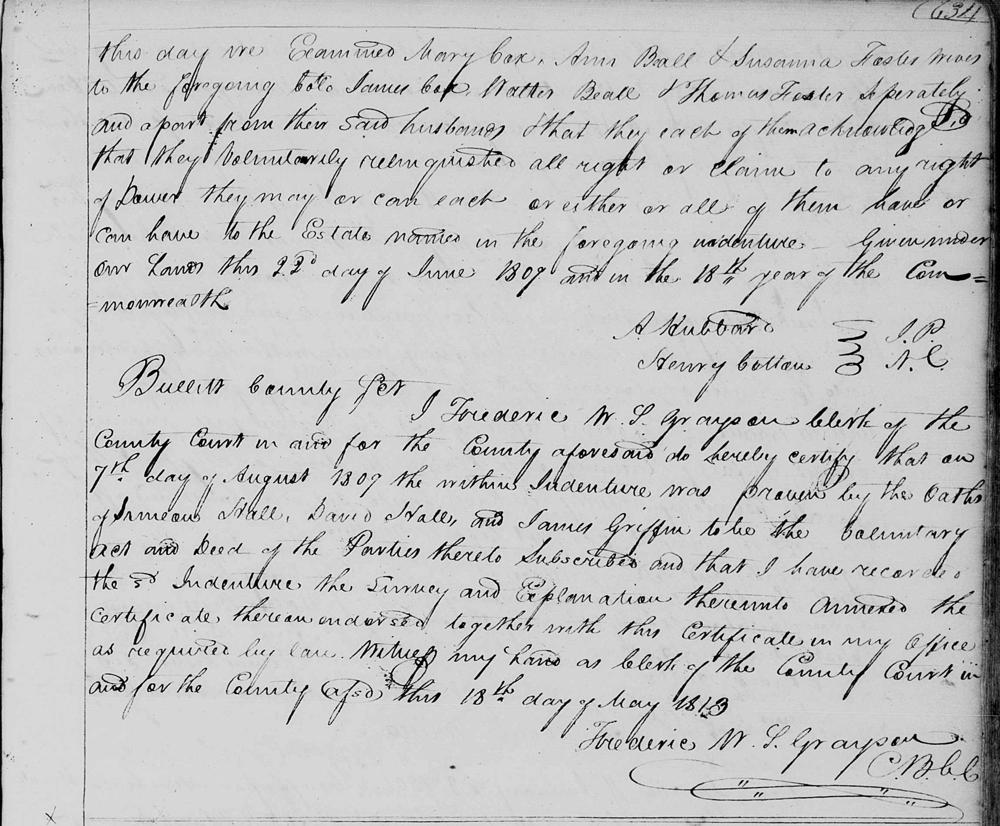 (634
this day we Examined Mary Cox, Ann Beall & Susanna Foster wives
to the foregoing Colo James Cox, Walter Beall & Thomas Foster Seperately
and apart from their said husbands & that they each of them acknowledge
that they Voluntarily relinquished all right or Claim to any right
of Dower they may or can each or either or all of them have or
can have to the Estate named in the foregoing indenture - Given under
our hands this 22d day of June 1809 and in the 18th year of the Com=
=monwealth
A Hubbard J. P.
Henry Cotton N. C.
Bullitt County Sct
I Frederic W. S. Grayson Clerk of the
County Court in and for the County aforesaid do hereby certify that on
7th day of August 1809 the within Indenture was proven by the Oaths
of Simeon Hall, David Hall, and James Griffin to be the Voluntary
act and Deed of the Parties thereto Subscribed and that I have recorded
the sd Indenture the Survey and Explanation thereunto annexed the
Certificate thereon endorsed together with this Certificate in my Office
as required by law. Witness my hand as Clerk of the County Court in
and for the County afsd this 18th day of May 1813
Frederic W. S. Grayson
C B C C
x